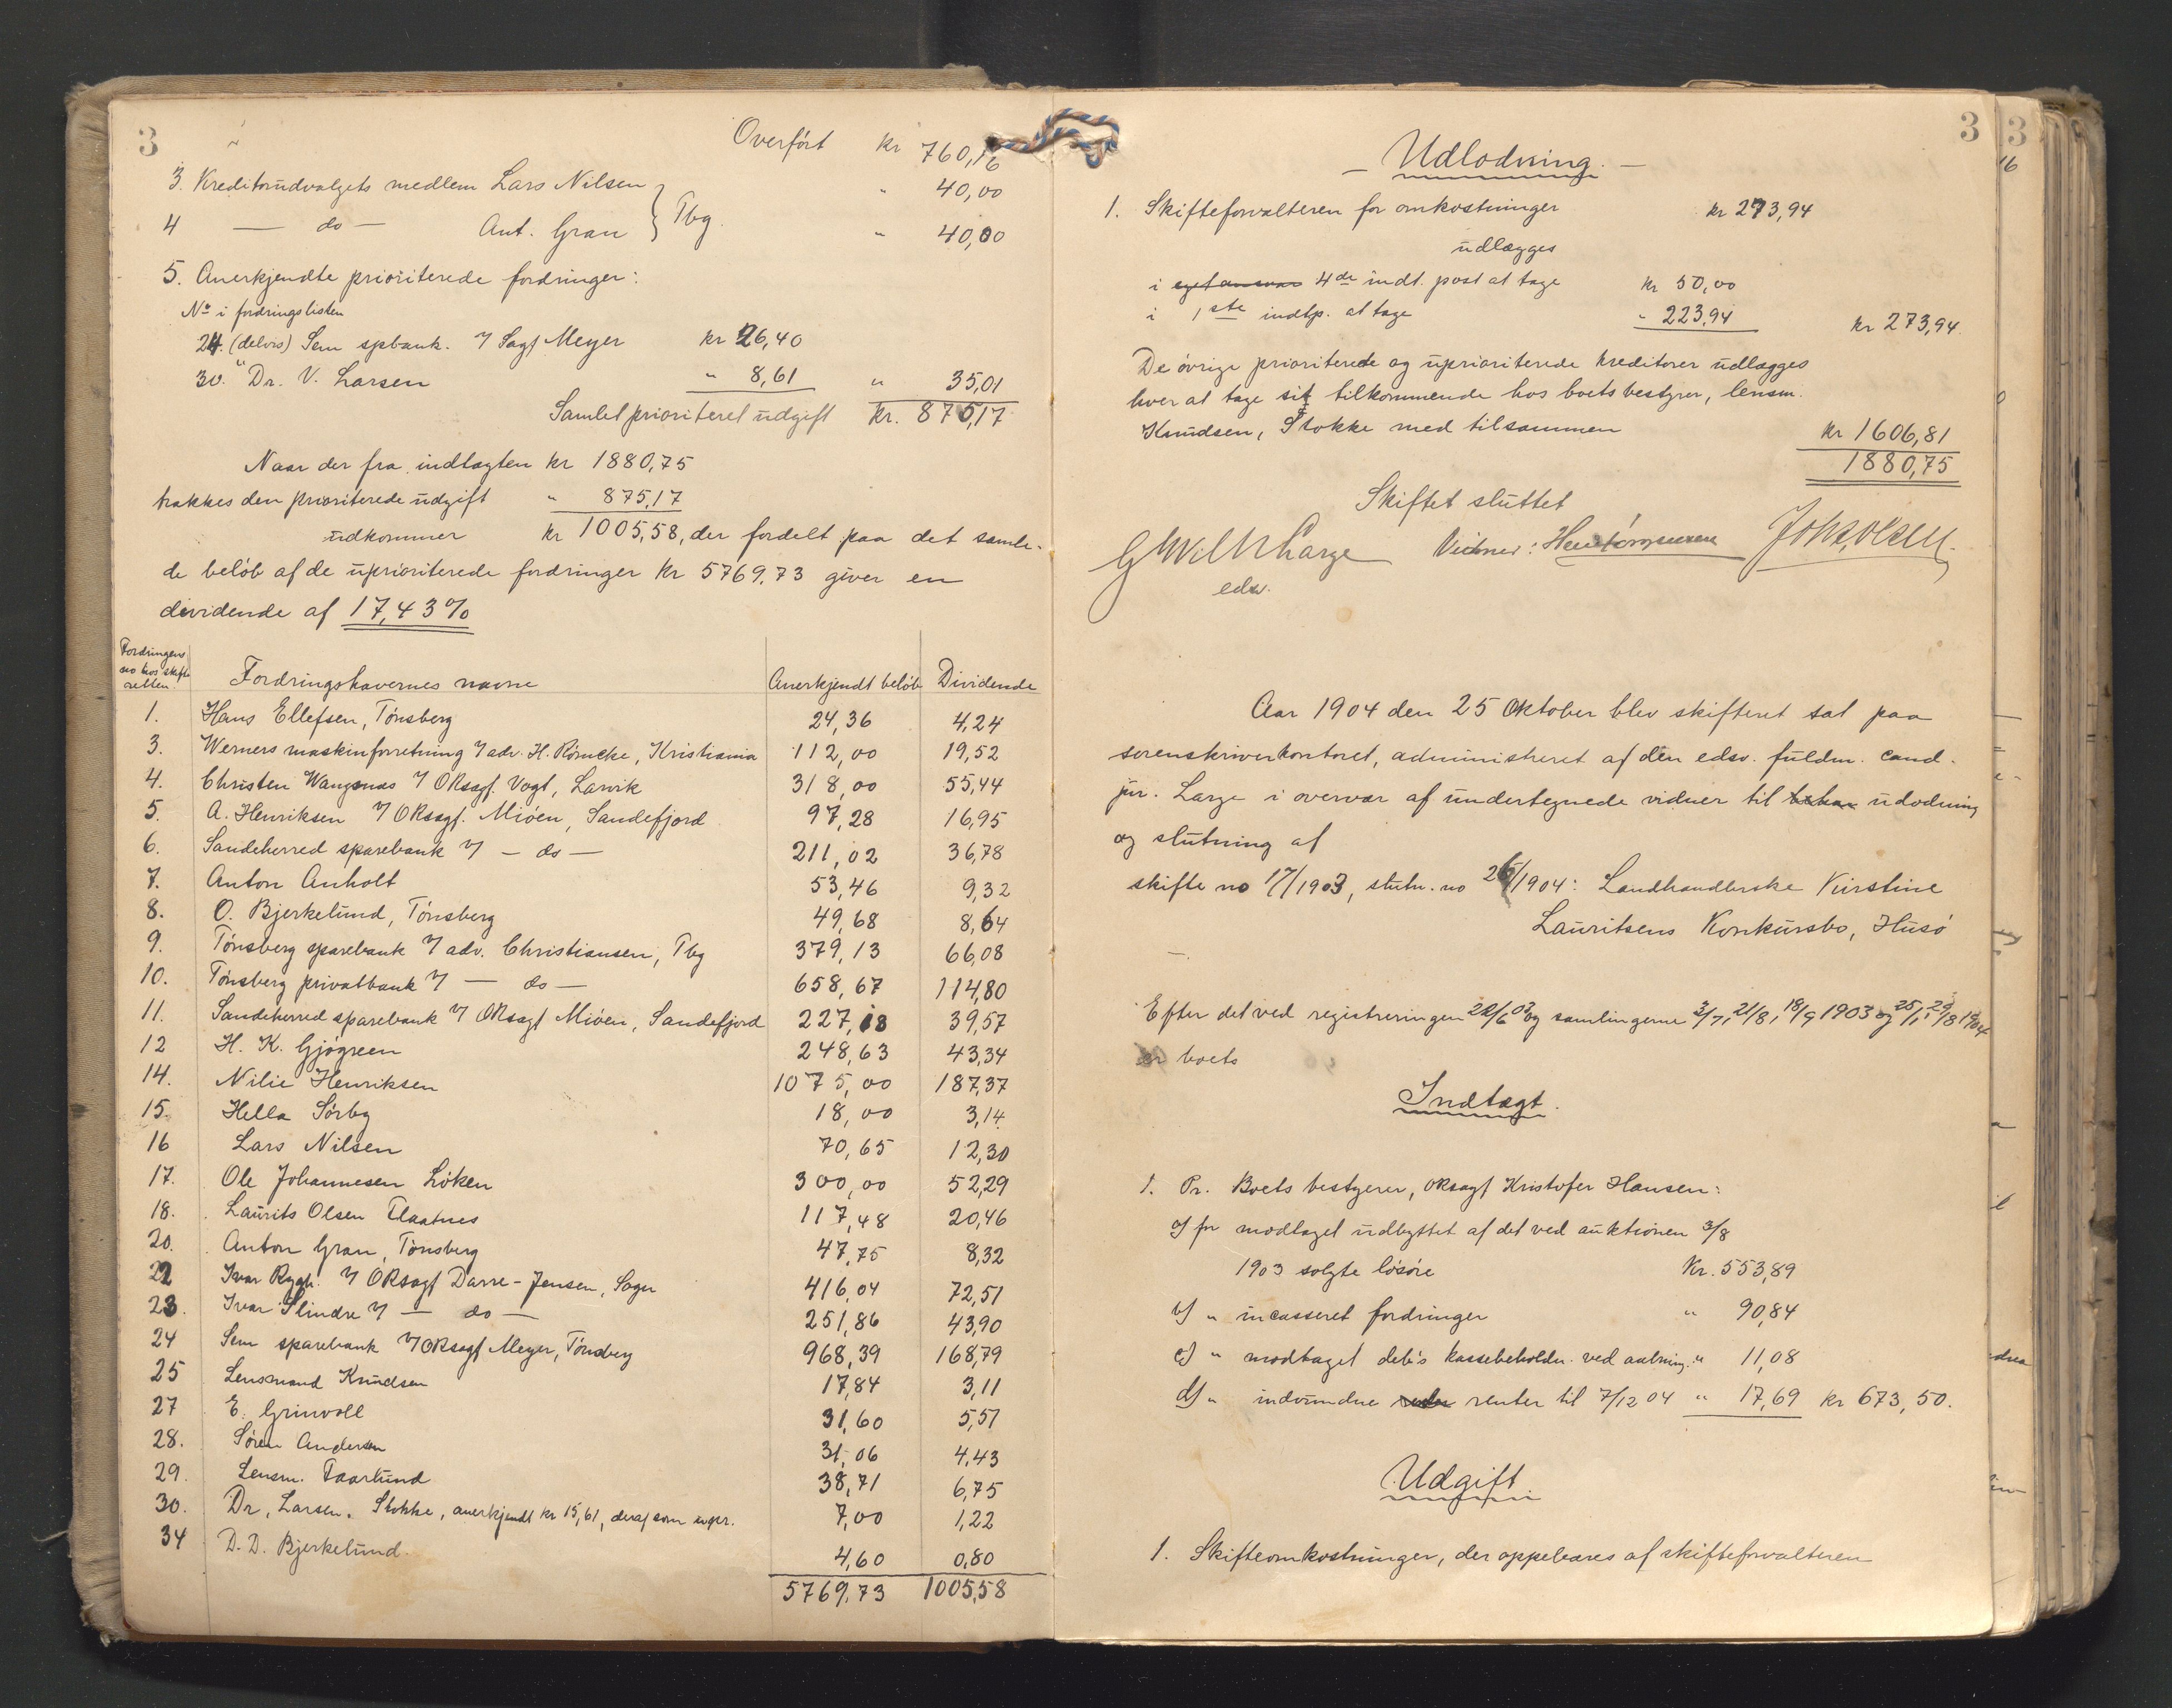 3
Overført kr 760,16
3. Kreditorudvalgets medlem Lars Nilsen } Tbg. " 40,00
4 — do — Ant. Gran " 40,00
5. Anerkjendte prioriterede fordringer:
No i fordringslisten
24. (delvis) Sem spbank. v/ Sagf Meyer kr 26,40
30. " Dr. V. Larsen " 8,61 " 35,01
Samlet prioriteret udgift kr. 875,17
Naar der fra indtægten kr 1880,75
trækkes den prioriterede udgift " 875,17
udkommer kr 1005,58, der fordelt paa det samle-
de beløb af de uprioriterede fordringer kr 5769.73 giver en
dividende af 17,43 %
Fordringens no hos skifteretten Fordringshavernes navne Anerkjendt beløb Dividende
1. Hans Ellefsen, Tønsberg 24,36 4,24
3. Werners maskinforretning v/ adv. H. Rømcke, Kristiania 112,00 19,52
4. Christen Wangsnæs v/ ORsagf. Vogt, Larvik 318,00 55,44
5. A. Henriksen v/ ORsagf. Miøen, Sandefjord 97,28 16,95
6. Sandeherred sparebank v/ — do — 211,02 36,78
7. Anton Anholt 53,46 9,32
8. O. Bjerkelund, Tønsberg 49,68 8,64
9. Tønsberg sparebank v/ adv. Christiansen, Tbg 379,13 66,08
10. Tønsberg privatbank v/ — do — 658,67 114,80
11. Sandeherred sparebank v/ ORsagf Miøen, Sandefjord 227,18 39,57
12 H. K. Gjøgreen 248,63 43,34
14. Nilie Henriksen 1075,00 187,37
15. Hella Sørby 18,00 3,14
16 Lars Nilsen 70,65 12,30
17. Ole Johannesen Løken 300,00 52,29
18. Laurits Olsen Flaatnes 117,48 20,46
20. Anton Gran, Tønsberg 47,75 8,32
22 Ivar Rygh. v/ ORsagf Darre-Jensen, Soger 416,04 72,51
23. Ivar Slindre v/ — do — 251,86 43,90
24 Sem sparebank v/ ORsagf Meyer, Tønsberg 968,39 168,79
25 Lensmand Knudsen 17,84 3,11
27 E. Grinvoll 31,60 5,51
28. Søren Andersen 31,06 4,43
29. Lensm. Faarlund 38,71 6,75
30. Dr. Larsen. Stokke, anerkjendt kr 15,61, deraf som uspr. 7,00 1,22
34 D. D. Bjerkelund. 4,60 0,80
5769.73 1005,58
3
— Udlodning. —
1. Skifteforvalteren for omkostninger kr 273,94
udlægges
i eget ansvar 4de indt. post at tage kr 50,00
i 1ste indtp. at tage " 223,94 kr 273,94.
De øvrige prioriterede og uprioriterede kreditorer udlægges
hver at tage sit tilkommende hos boets bestyrer, lensm.
Knudsen, Stokke med tilsammen kr 1606,81
1880,75
Skiftet sluttet
Vidner: Joh. Olsen
edsv.
Aar 1904 den 25 Oktober blev skifteret sat paa
sorenskriverkontoret, administreret af den edsv. fuldm. cand.
jur. Large i overvær af undertegnede vidner til udlodning
og slutning af
skifte no 17/1903, slutn. no 26/1904: Landhandlerske Kirstine
Lauritsens Konkursbo, Husø
Efter det ved registreringen 22/6 03 og samlingerne 3/7, 21/8, 18/9 1903 og 25/1, 29/8 1904
er boets
Indtægt.
1. Pr. Boets bestyrer, ORsagf Kristofer Hansen:
a) for modtaget udbyttet af det ved auktionen 3/8
1903 solgte løsøre Kr. 553,89
b) " incasseret fordringer " 90,84
c) " modtaget deb's kassebeholdn. ved aabning. " 11,08
d) " indvundne renter til 7/12 04 " 17,69 kr 673,50.
Udgift.
1. Skifteomkostninger, der oppebæres af skifteforvalteren
3